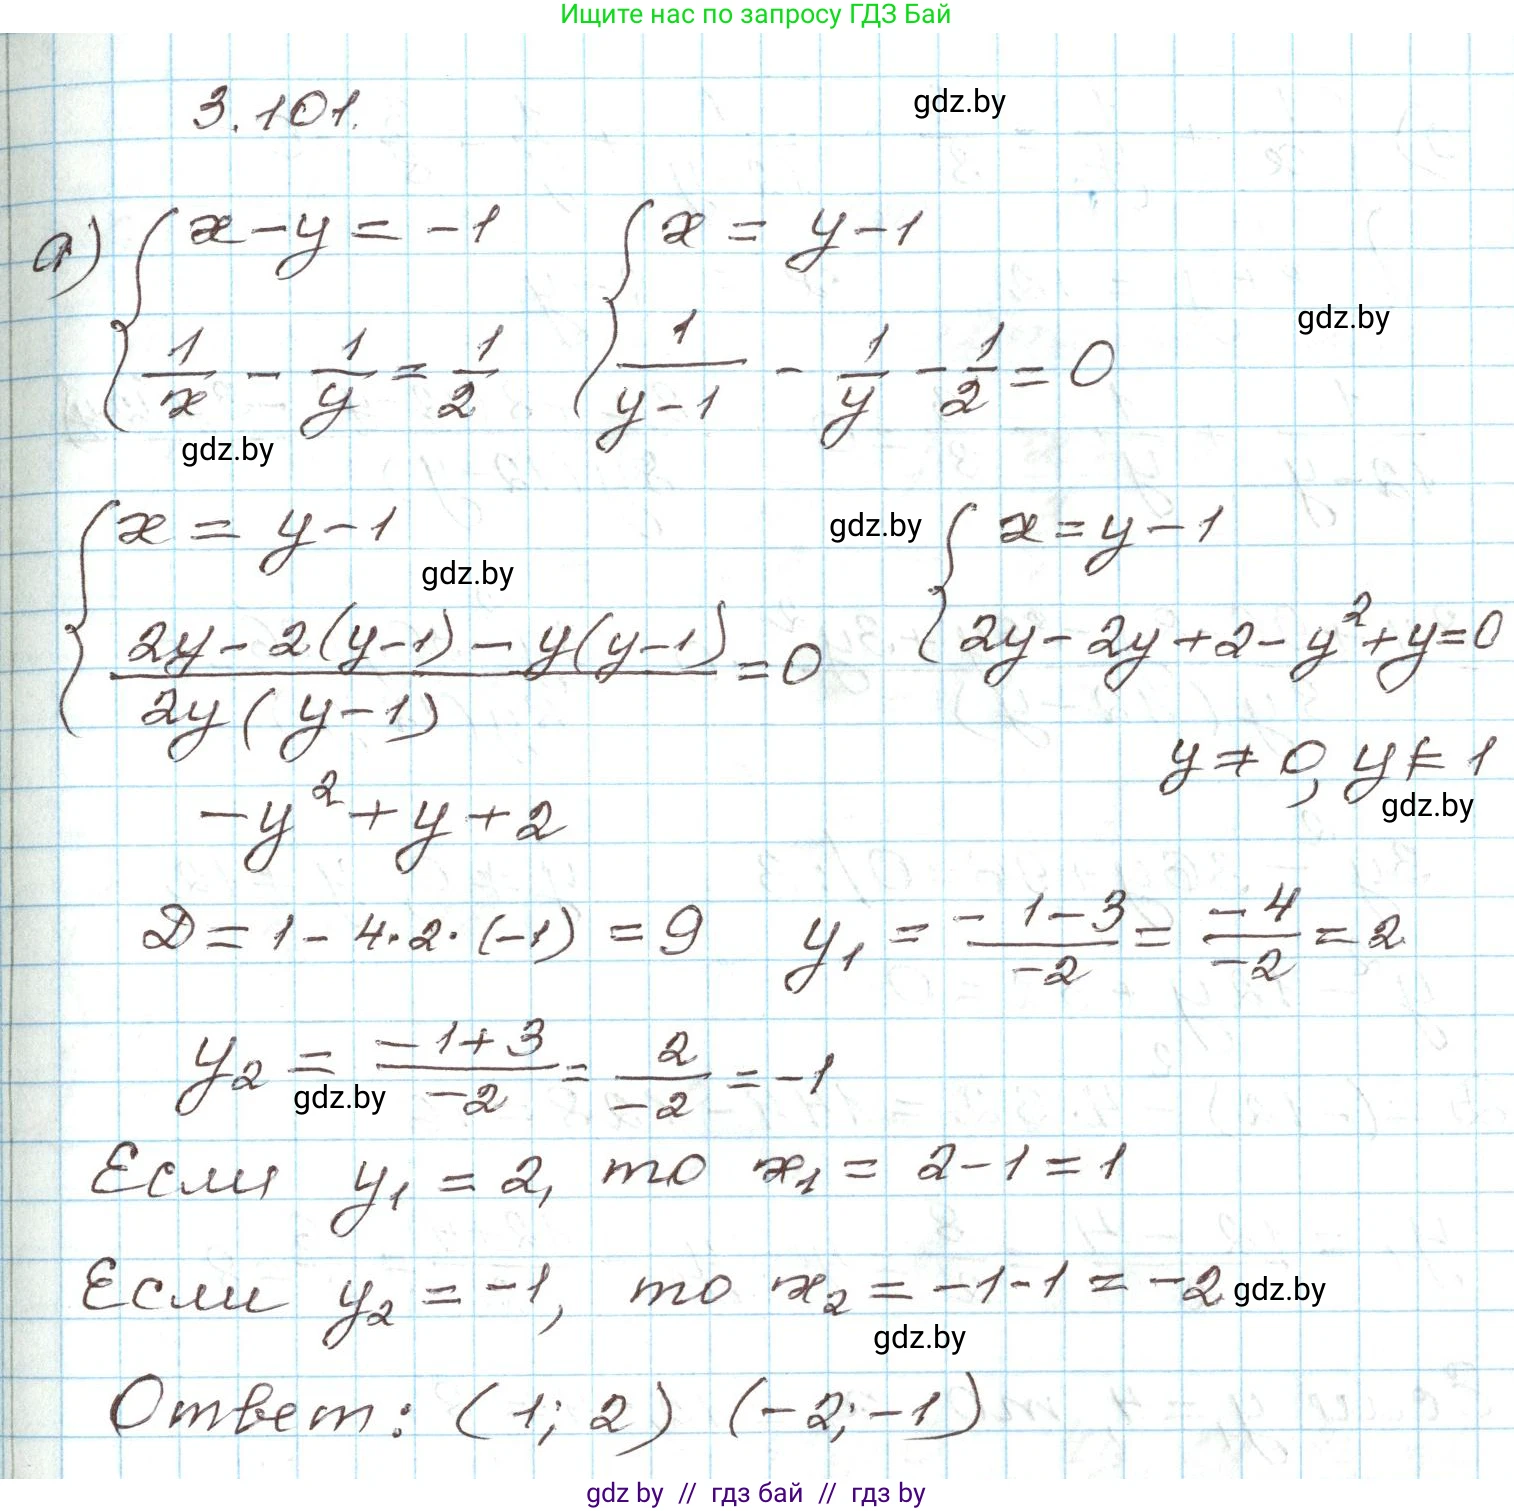 Ищите нас по запросу ГДЗ Бай
3.101.
gdz.by
а) { x - y = -1 { x = y - 1
1/x - 1/y = 1/2 1/(y-1) - 1/y - 1/2 = 0
gdz.by
gdz.by
{ x = y - 1 gdz.by { x = y - 1
gdz.by
(2y - 2(y-1) - y(y-1)) / (2y(y-1)) = 0 2y - 2y + 2 - y² + y = 0
y ≠ 0, y ≠ 1
gdz.by
-y² + y + 2
D = 1 - 4·2·(-1) = 9 y₁ = (-1-3)/(-2) = (-4)/(-2) = 2
y₂ = (-1+3)/(-2) = 2/(-2) = -1
gdz.by
Если y₁ = 2, то x₁ = 2 - 1 = 1
Если y₂ = -1, то x₂ = -1 - 1 = -2 gdz.by
gdz.by
Ответ: (1; 2) (-2; -1)
gdz by // гдз бай // гдз by